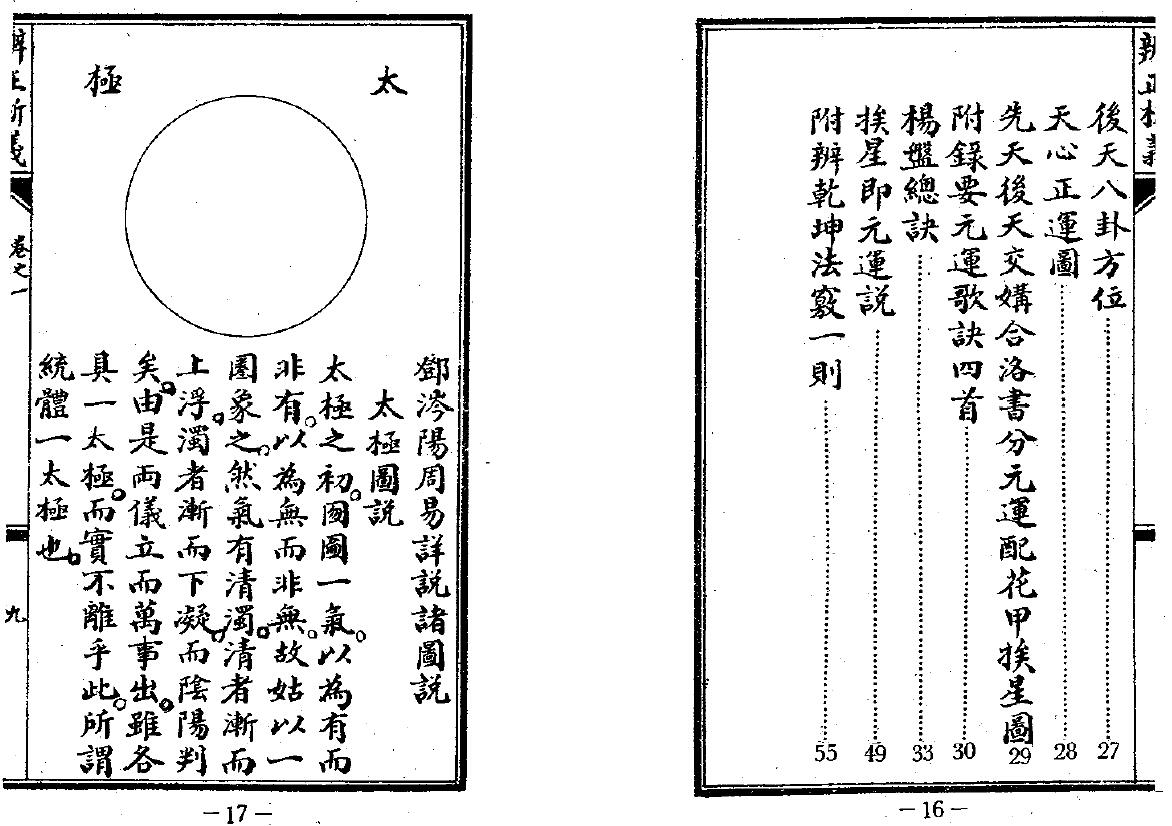 後天八卦方位 27
天心正運圖 28
先天後天交媾合洛書分元運配花甲挨星圖 29
附錄要元運歌訣四首 30
楊盤總訣 33
挨星即元運説 49
附辨乾坤法竅一則 55
—16—
太極
鄧涔陽周易詳説諸圖説
太極圖説
太極之初囫圇一氣。以為有而
非有。以為無而非無。故姑以一
圈象之。然氣有清濁。清者漸而
上浮。濁者漸而下凝。而陰陽判
矣。由是兩儀立而萬事出。雖各
具一太極。而實不離乎此。所謂
統體一太極也。
卷之一
九
—17—